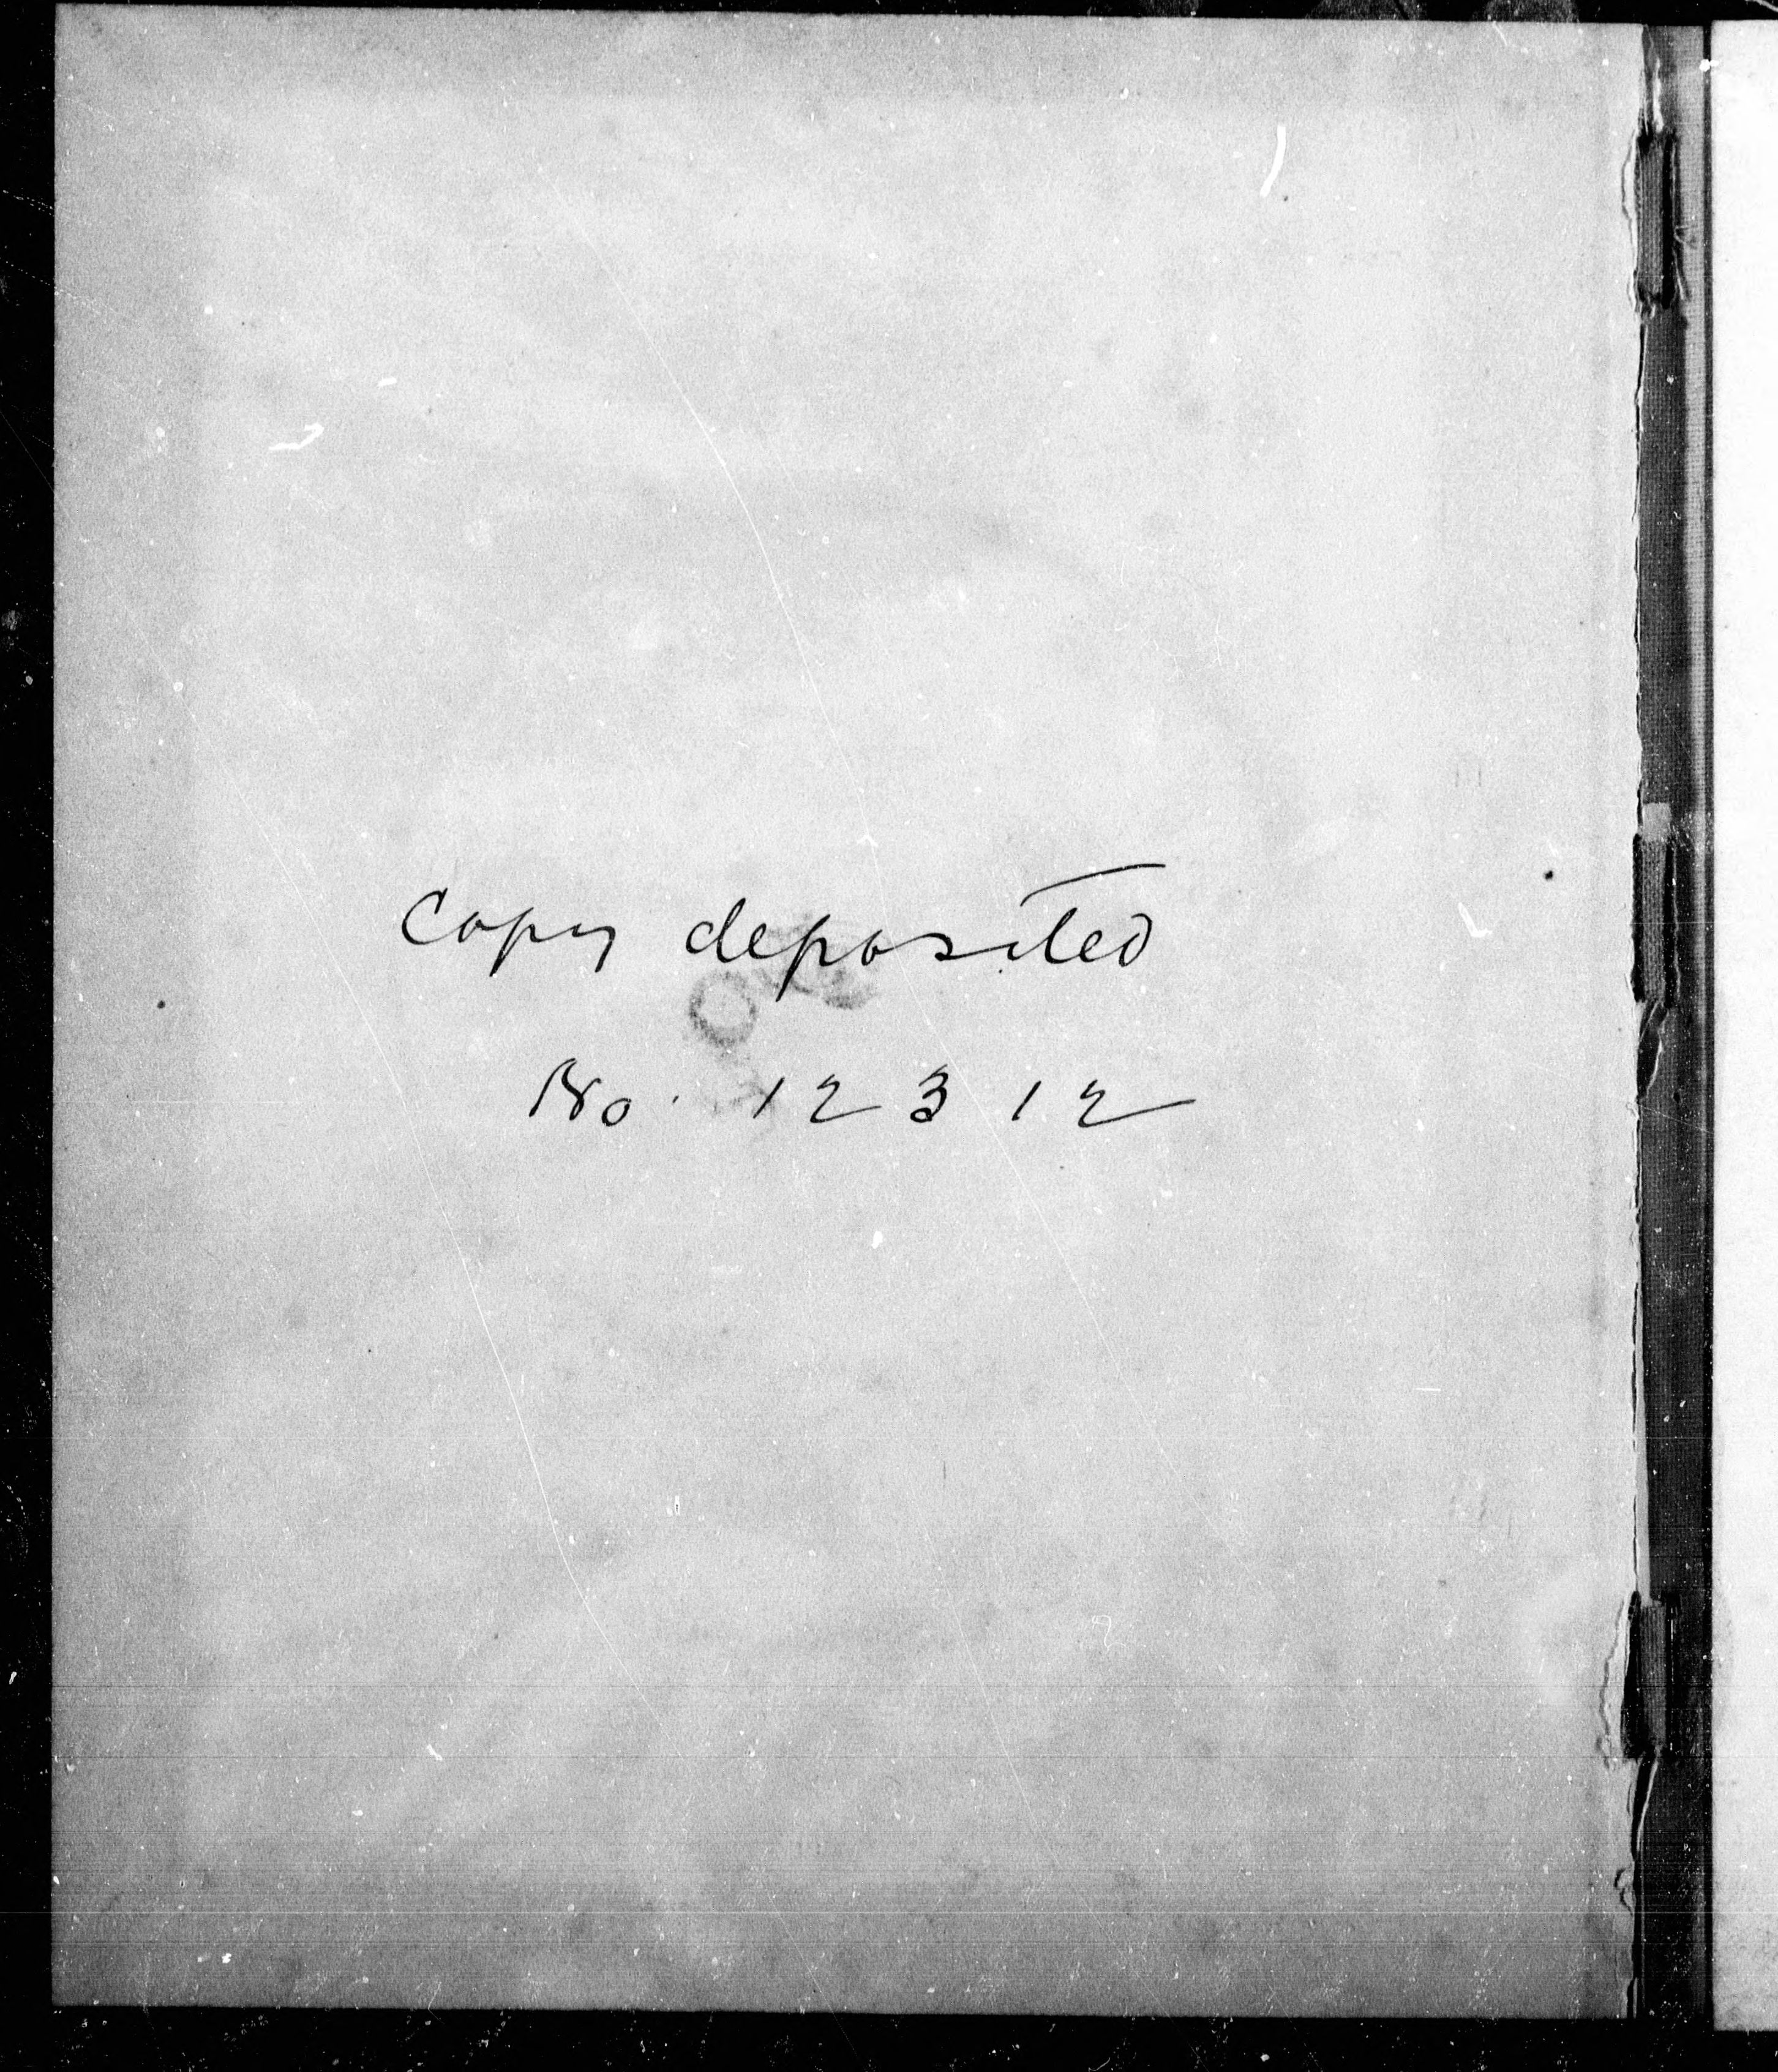 Copy deposited
No. 12312